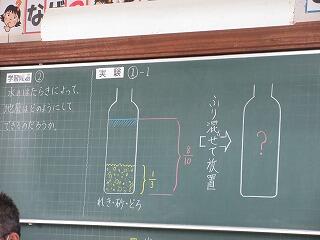 なぜ
学習問題②
水のはたらきによって、
地層はどのようにして
できるのだろうか。
実験 ①-1
8/10
1/3
れき・砂・どろ
ふり混ぜて放置
?